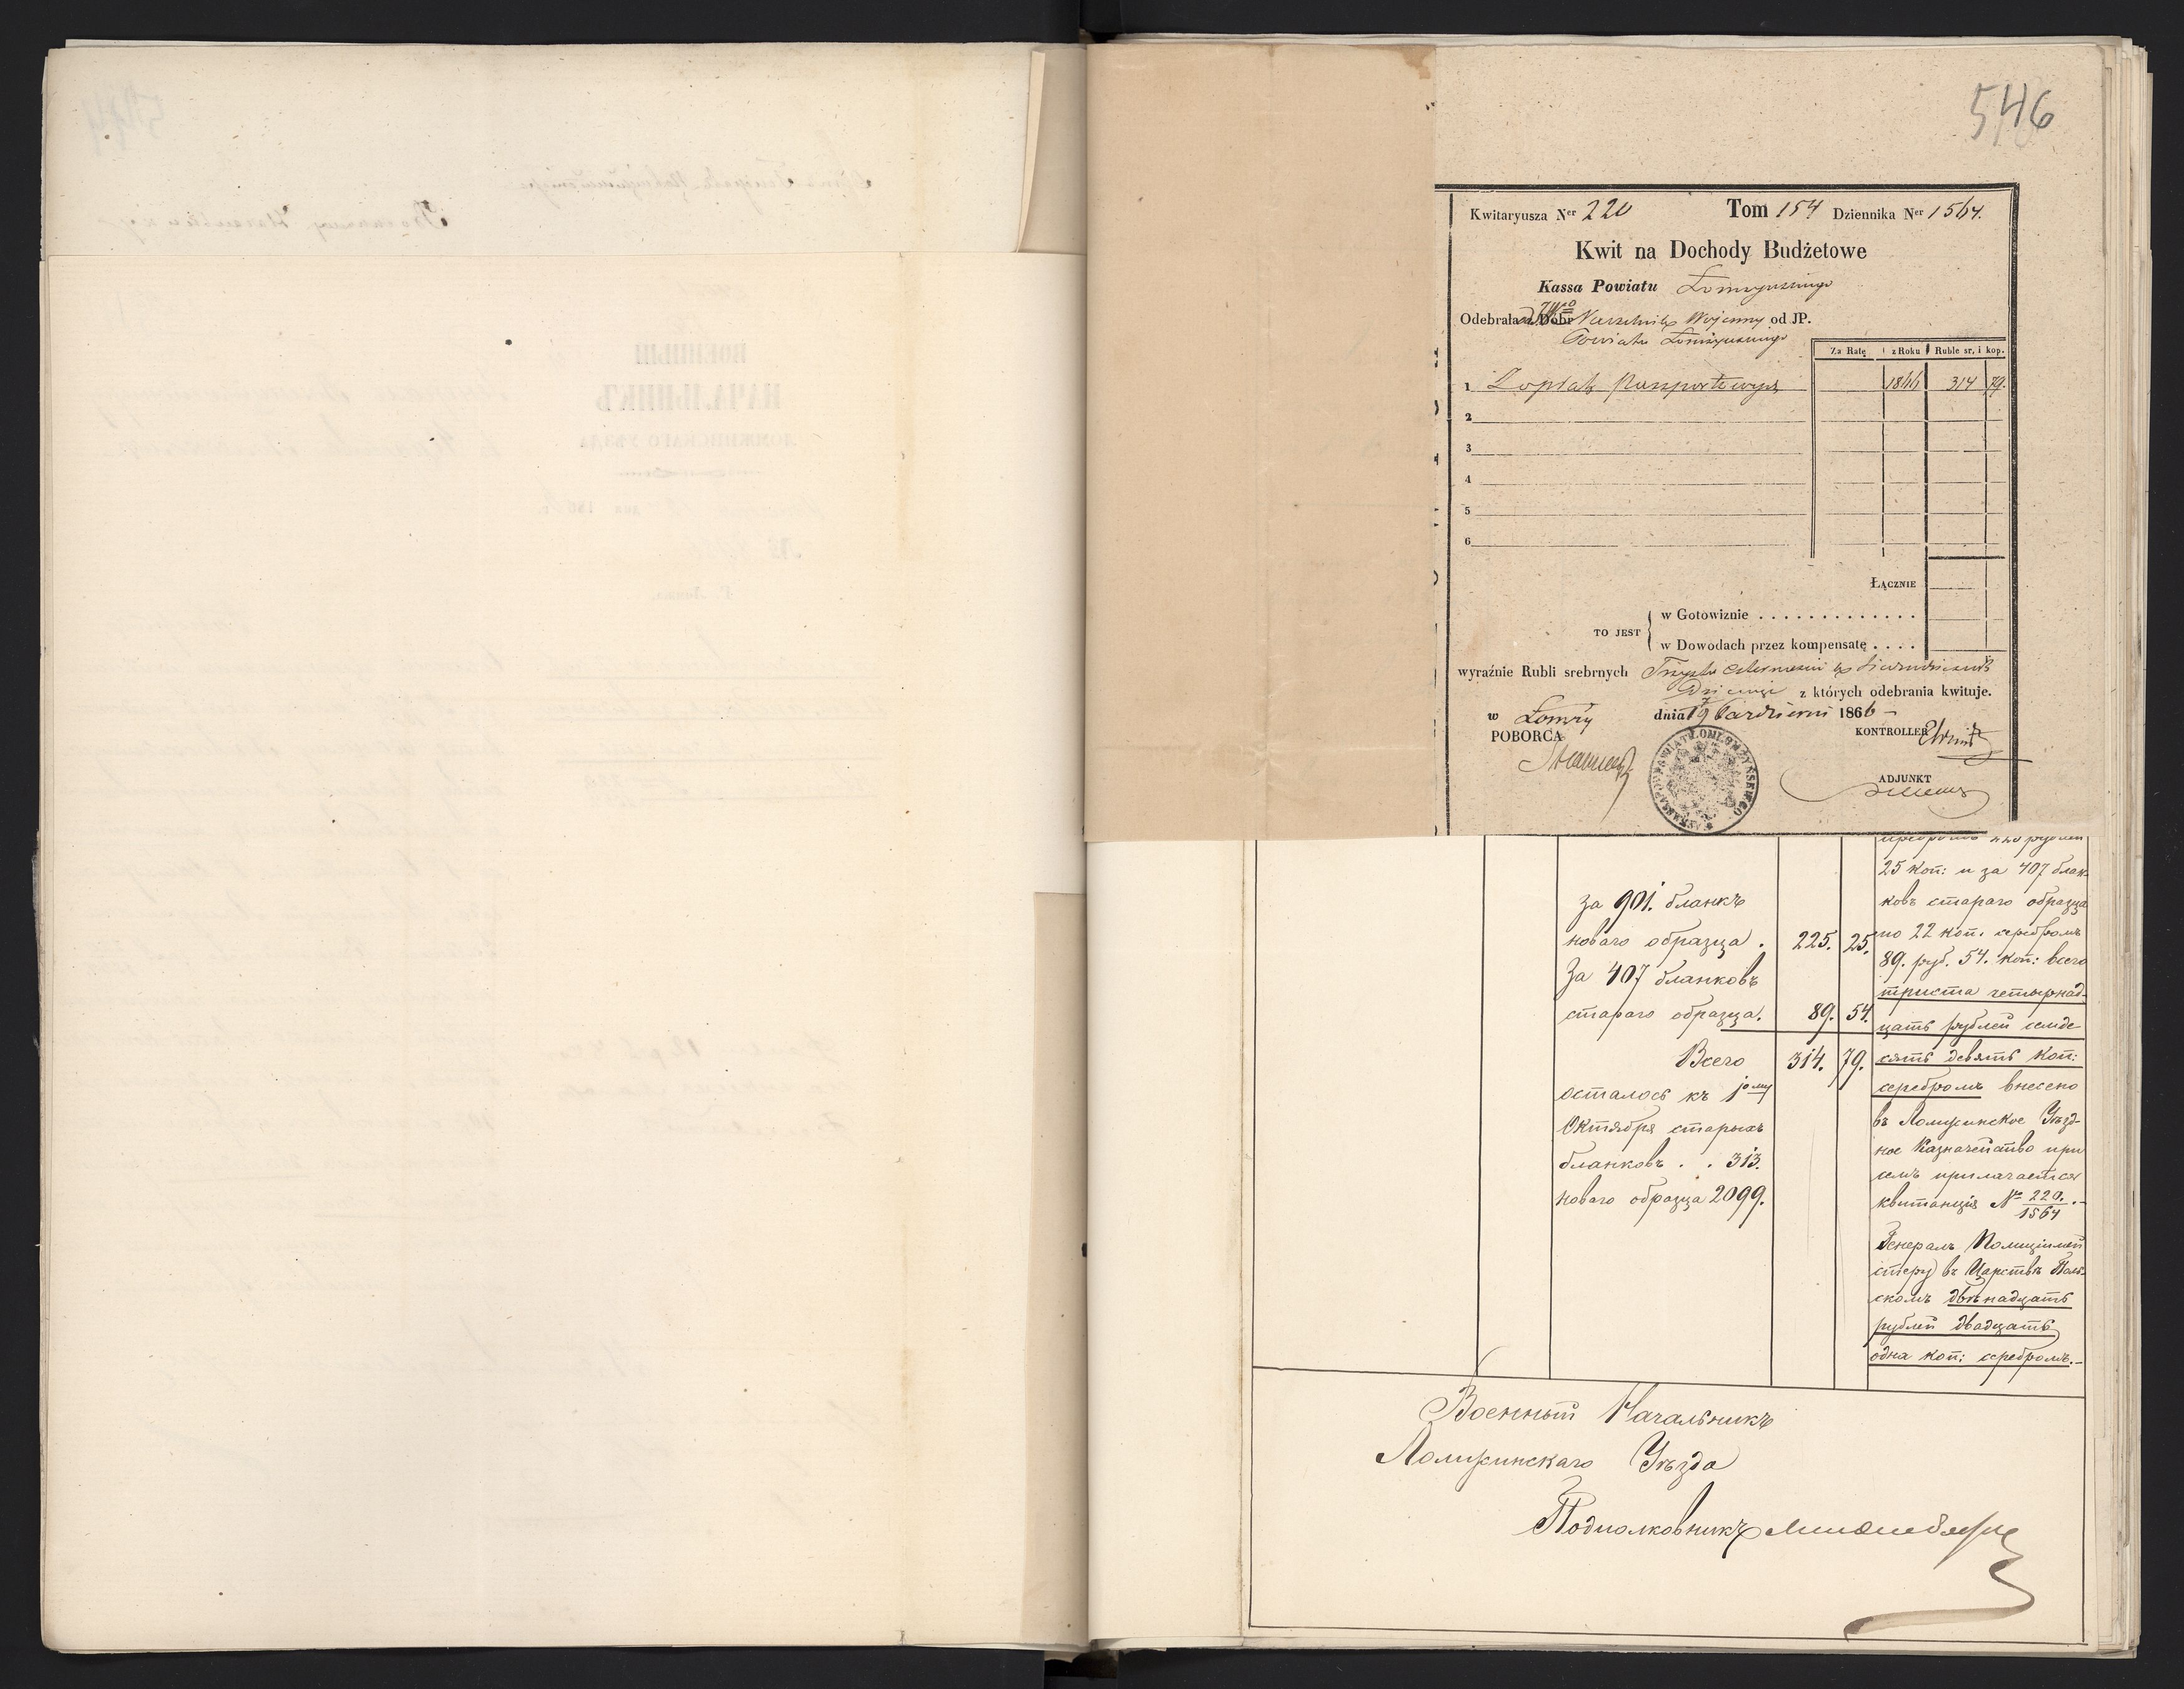 546
Kwitaryusza Ner 220 Tom 154 Dziennika Ner 1564.
Kwit na Dochody Budżetowe
Kassa Powiatu Łomżyńskiego
Odebrała z Dobr Naczelnik Wojenny od JP.
Powiatu Łomżyńskiego
Za Ratę z Roku Ruble sr. i kop.
1 Z opłat paszportowych 1866 314 79.
2
3
4
5
6
Łącznie
TO JEST
w Gotowiznie . . . . . . . . . . . . .
w Dowodach przez kompensatę . . . .
wyraźnie Rubli srebrnych Trzysta czternaście kp siedmdziesiąt
dziewięć z których odebrania kwituje.
w Łomży dnia 7/19 Października 1866
POBORCA KONTROLLER
ADJUNKT
25 коп: и за 407 блан-
ковъ стараго образца
по 22 коп. серебромъ
89. руб. 54. коп: всего
триста четырнад-
цать рублей семде-
сятъ девять коп:
серебромъ внесено
въ Ломжинское Уѣзд-
ное Казначейство при
семъ прилагается
квитанція № 220./1564 .-
Генералъ Полиціймей
стеру въ Царствѣ Поль-
скомъ двѣнадцать
рублей двадцать
одна коп: серебромъ.-
За 901. бланкъ
новаго образца . 225. 25.
За 407 бланковъ
стараго образца. 89. 54.
Всего 314. 79.
осталось къ 1ому
Октября старыхъ
бланковъ . . 313.
новаго образца 2099.
Военный Начальникъ
Ломжинскаго Уѣзда
Подполковникъ